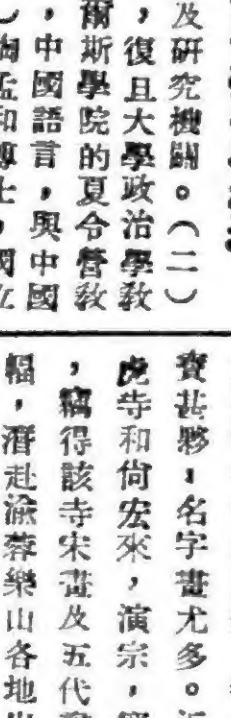 及研究機關。(二)
，復旦大學政治學教
爾斯學院的夏令營教
，中國語言，與中國
）陶孟和博士，國立
寶甚夥，名字畫尤多。
虎寺和尙宏來，演宗，
，竊得該寺宋畫及五代
幅，潛赴渝蓉樂山各地